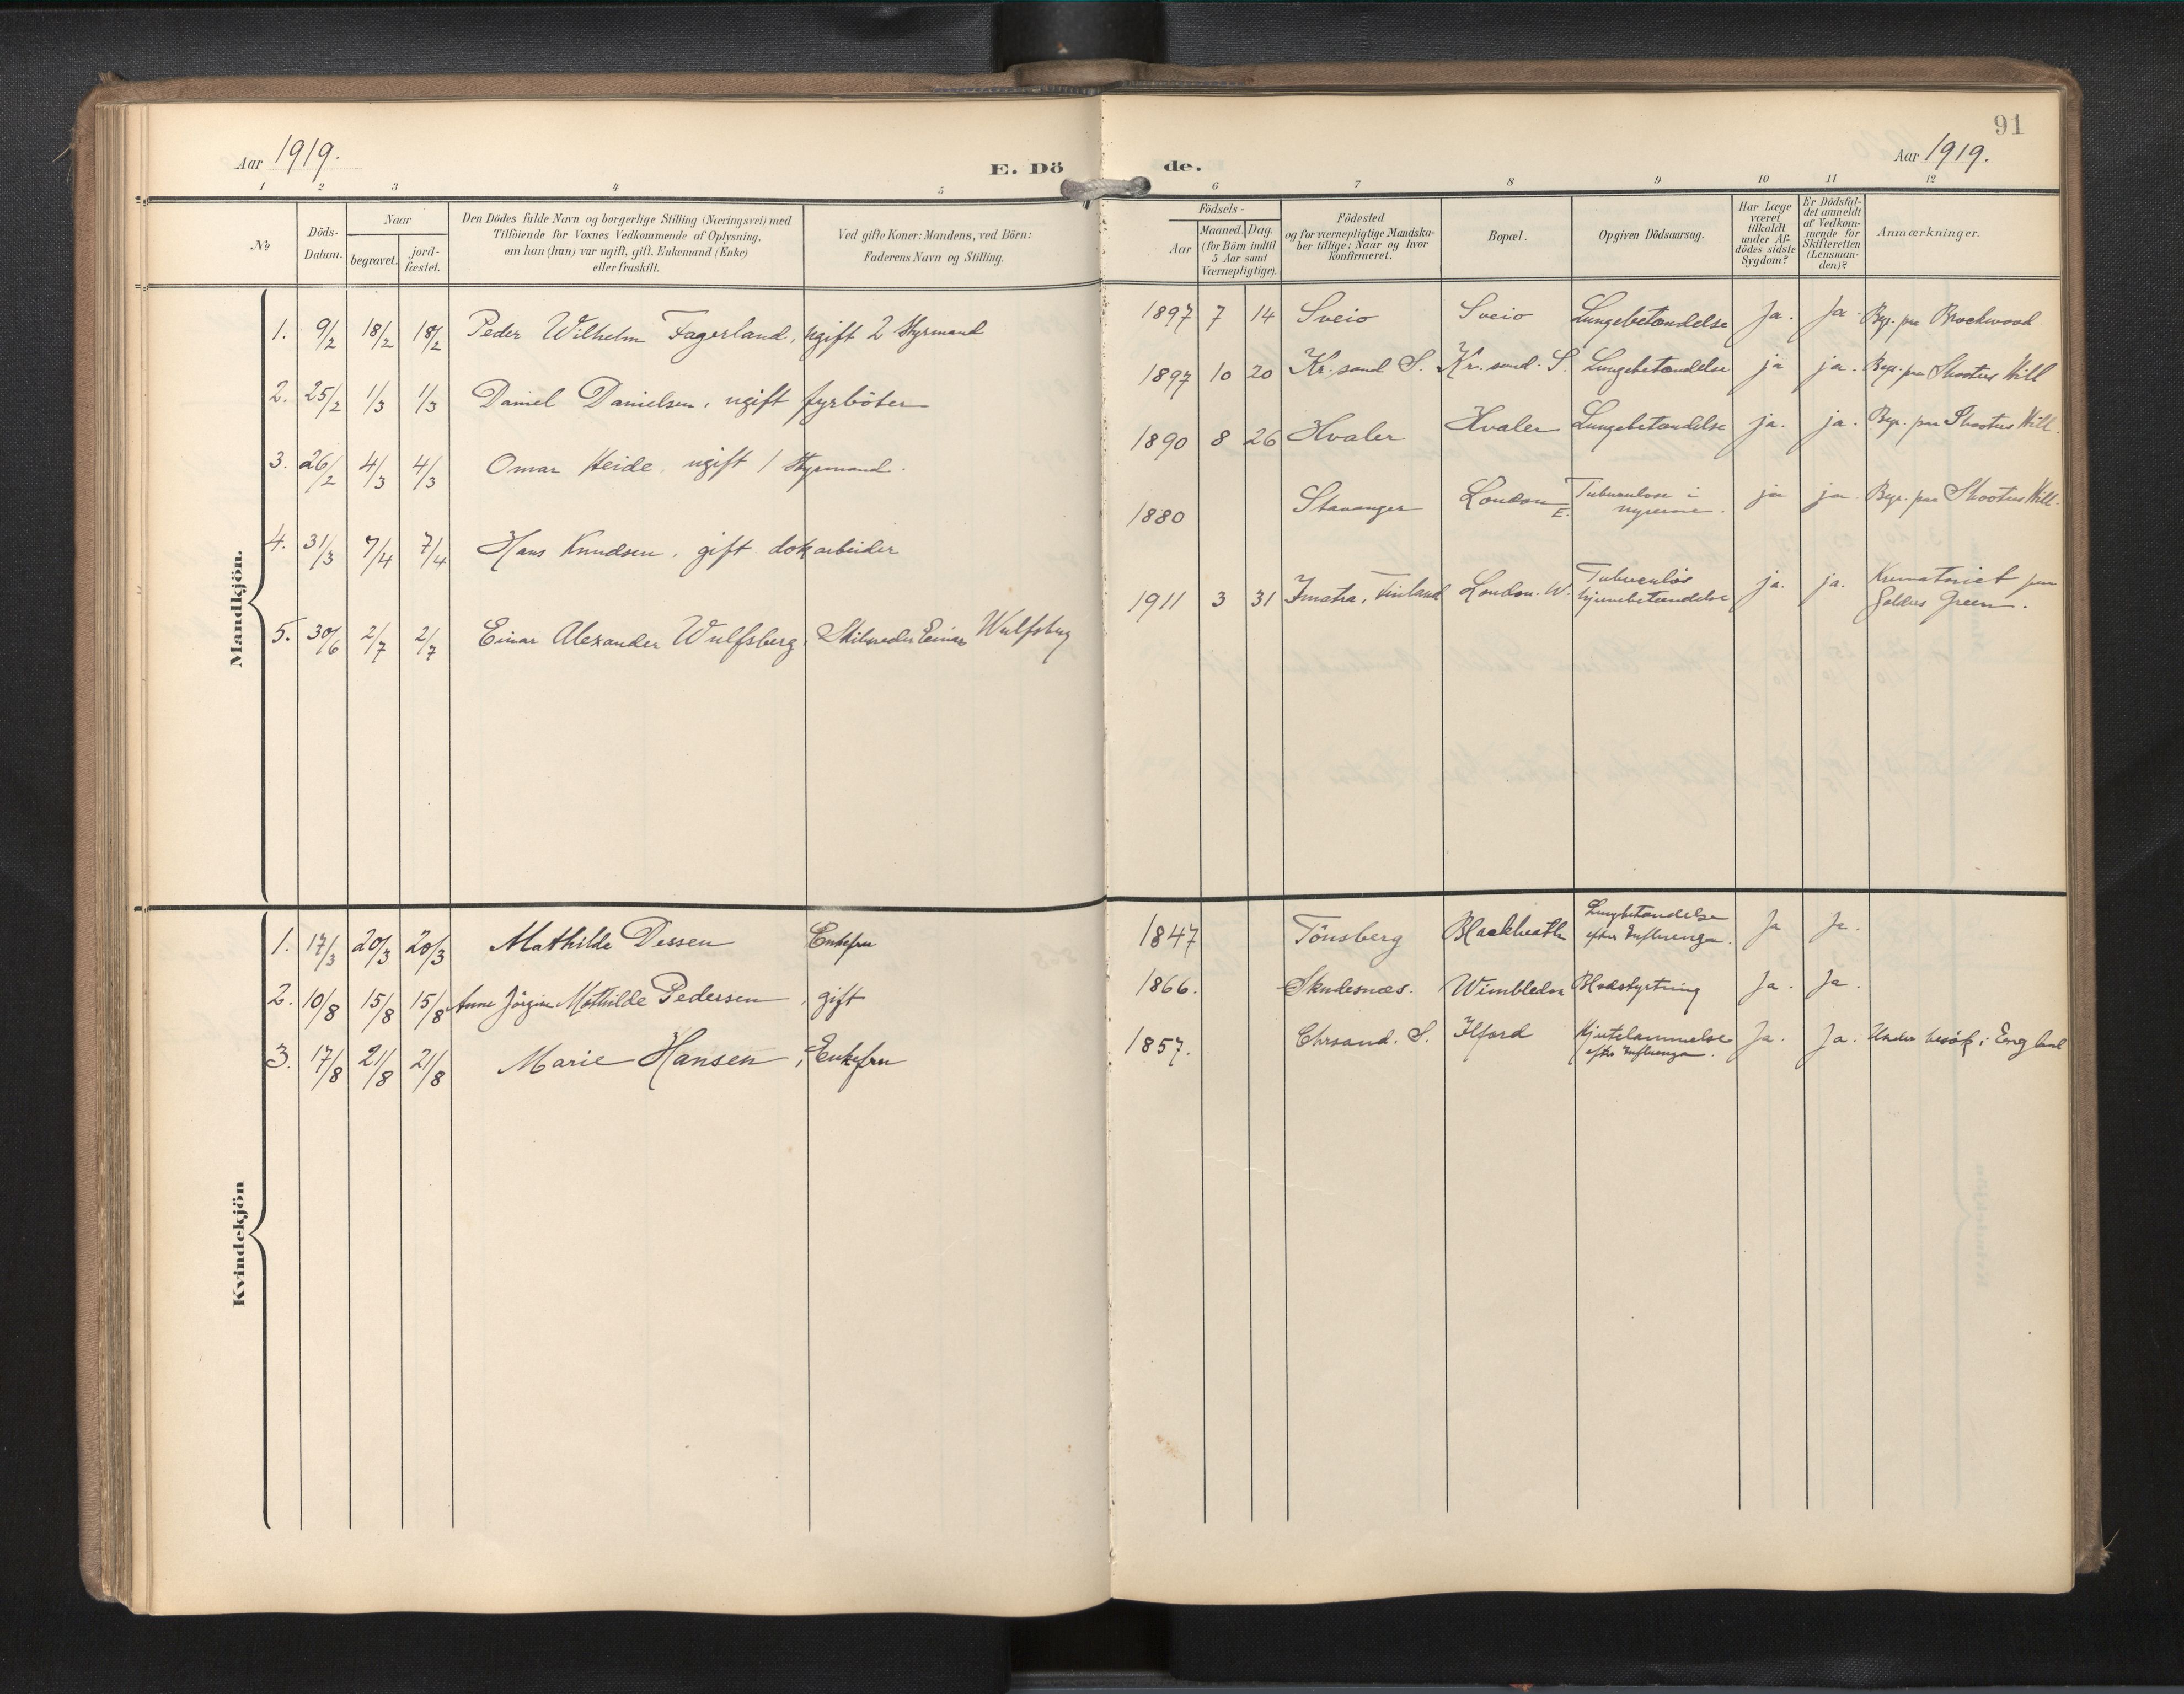 91
Aar 1919.
E. Dö de.
Aar 1919.
1 2 3 4 5 6 7 8 9 10 11 12
No
Döds-Datum.
Naar
begravet.
jord-fæstet.
Den Dödes fulde Navn og borgerlige Stilling (Næringsvei) med
Tilföiende for Voxnes Vedkommende af Oplysning,
om han (hun) var ugift, gift, Enkemand (Enke)
eller fraskilt.
Ved gifte Koner: Mandens, ved Börn:
Faderens Navn og Stilling.
Födsels-
Aar
Maaned. Dag.
(for Börn indtil
5 Aar samt
Værnepligtige).
Födested
og for værnepligtige Mandska-
ber tillige: Naar og hvor
konfirmeret.
Bopæl.
Opgiven Dödsaarsag.
Har Læge
været
tilkaldt
under Af-
dödes sidste
Sygdom?
Er Dödsfal-
det anmeldt
af Vedkom-
mende for
Skifteretten
(Lensman-
den)?
Anmærkninger.
Mandkjön.
1. 9/2 18/2 18/2 Peder Wilhelm Fagerland, ugift 2 Styrmand 1897 7 14 Sveio Sveio Lungebetændelse Ja. Ja. Begr. paa Brookwood
2. 25/2 1/3 1/3 Daniel Danielsen, ugift fyrböter 1897 10 20 Kr. sand S. Kr. sand. S. Lungebetændelse ja ja. Begr. paa Shooters Hill
3. 26/2 4/3 4/3 Omar Heide, ugift 1 Styrmand. 1890 8 26 Hvaler Hvaler Lungebetændelse ja. ja. Begr. paa Shooters Hill.
4. 31/3 7/4 7/4 Hans Knudsen, gift dokarbeider 1880 Stavanger London E. Tuberculose i nyrerne. ja ja. Begr. paa Shooters Hill.
5. 30/6 2/7 2/7 Einar Alexander Wulfsberg, Skibsreder Einar Wulfsberg 1911 3 31 Imatra, Finland London. W. Tuberculös hjernebetændelse ja. ja. Krematoriet paa Golders Green.
Kvindekjön
1. 17/3 20/3 20/3 Mathilde Dessen Enkefru 1847 Tönsberg Blackheath Lungbetændelse efter Influenza. Ja Ja.
2. 10/8 15/8 15/8 Anne Jörgine Mathilde Pedersen, gift 1866. Skudesnæs. Wimbledon Blodstyrtning Ja. Ja.
3. 17/8 21/8 21/8 Marie Hansen, Enkefru 1857. Chrsand. S. Ilford Hjertelammelse efter Influenza. Ja. Ja. Under besök i England